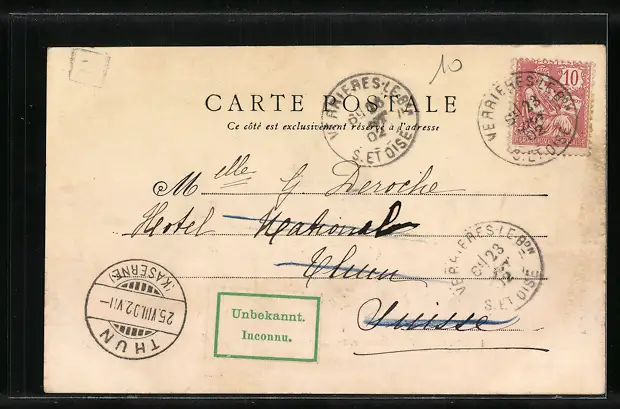 10
CARTE POSTALE
Ce côté est exclusivement réservé à l'adresse
VERRIÈRES-LE-BON
S. ET OISE
VERRIÈRES-LE-BON
23
02
S. ET OISE
10
Melle G. Deroche
Hotel National
Thun
Suisse
VERRIÈRES-LE-BON
23
02
S. ET OISE
THUN
25.VIII.02.VII-
(KASERNE)
Unbekannt.
Inconnu.